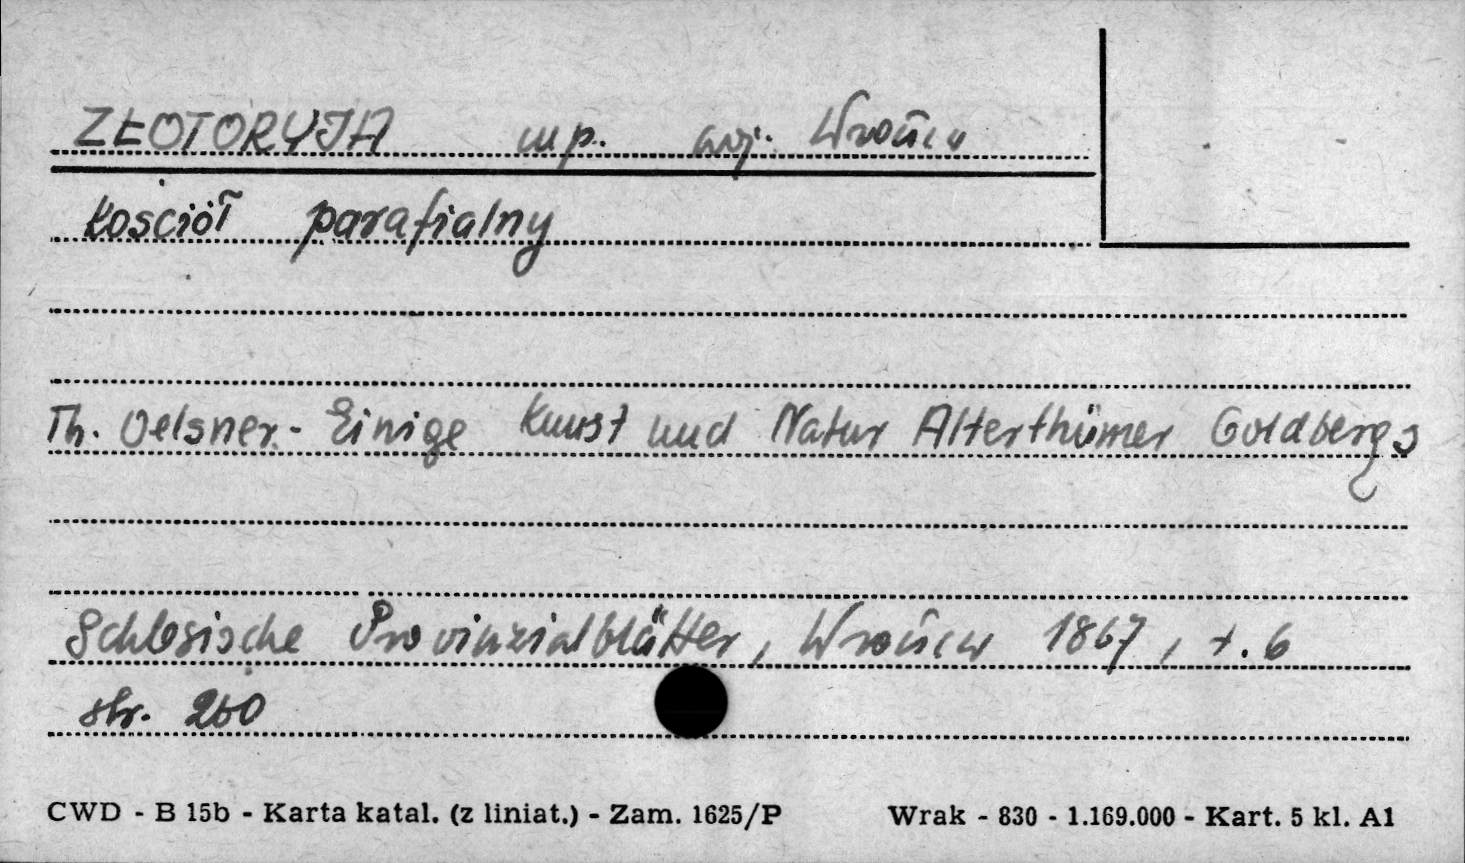 ZŁOTORYJA mp. woj. Wrocław
Kościół parafialny
Th. Oelsner - Einige Kunst und Natur Alterthümer Goldbergs
Schlesische Provinzialblätter, Wrocław 1867, t. 6
str. 260
CWD - B 15b - Karta katal. (z liniat.) - Zam. 1625/P Wrak - 830 - 1.169.000 - Kart. 5 kl. A1